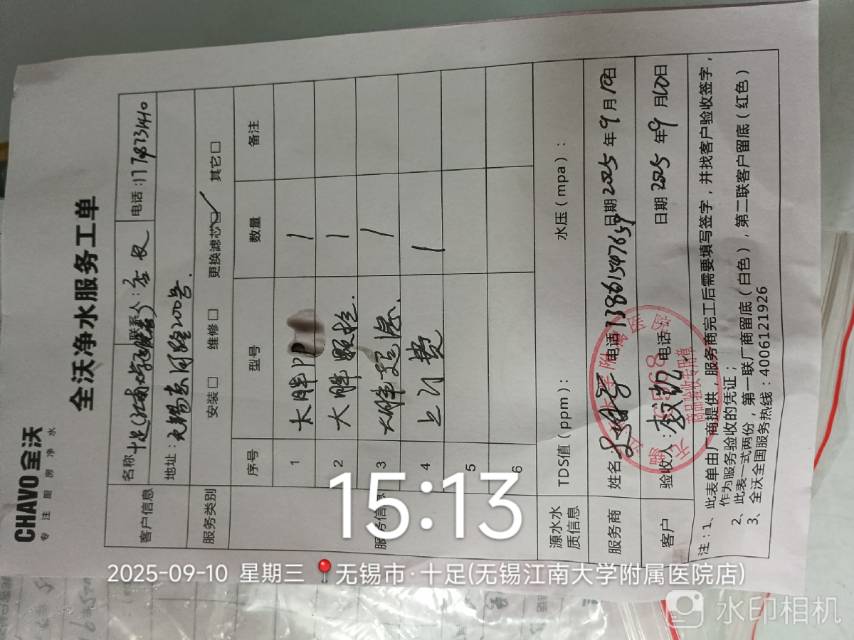 CHAVO 全沃
专注厨房净水
全沃净水服务工单
客户信息 名称 十足 联系人: 电话:
地址: 无锡 200号
服务类别 安装□ 维修□ 更换滤芯☑ 其它□
服务信息 序号 型号 数量 备注
1 大胖PP 1
2 大胖颗粒. 1
3 大胖 1
4 上门费 1
5
6
源水水质信息 TDS值(ppm): 水压(mpa):
服务商 姓名 电话 日期 2025 年 9 月 10 日
客户 验收人: 电话: 日期 2025 年 9 月 10 日
注:1、此表单由厂商提供,服务商完工后需要填写签字,并找客户验收签字,
作为服务验收的凭证;
2、此表一式两份,第一联厂商留底(白色),第二联客户留底(红色)
3、全沃全国服务热线:4006121926
15:13
2025-09-10 星期三 无锡市·十足(无锡江南大学附属医院店)
水印相机